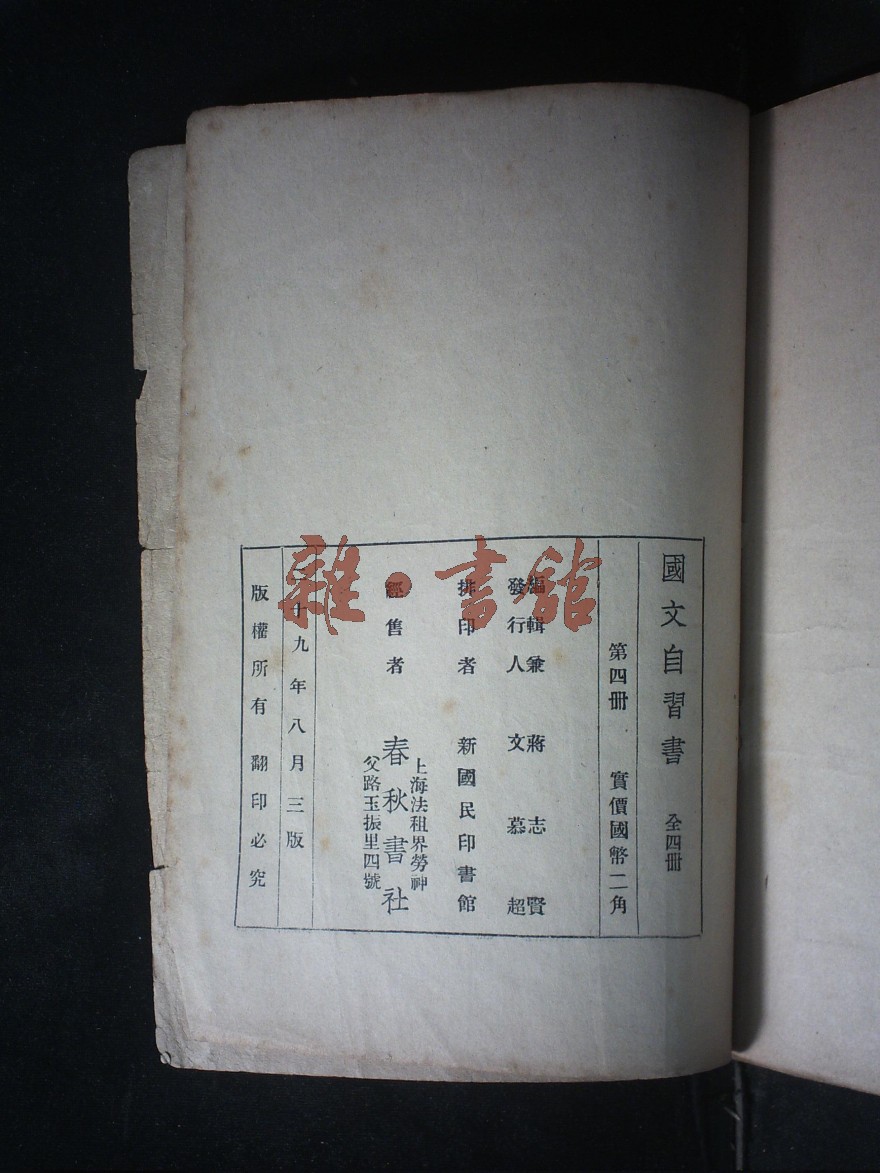 國文自習書 全四冊
第四冊 實價國幣二角
編輯兼 蔣志賢
發行人 文慕超
排印者 新國民印書館
經售者 春秋書社
上海法租界勞神
父路玉振里四號
二十九年八月三版
版權所有 翻印必究
雜·書舘